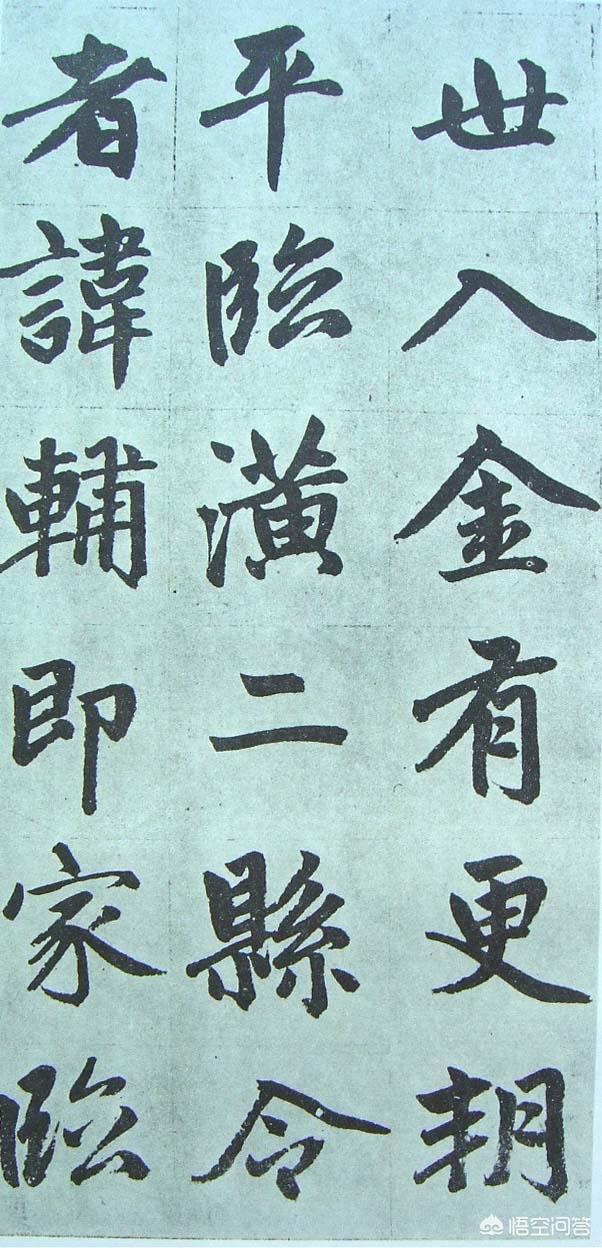 世入金有更朔
平臨潢二縣令
者諱輔即家臨
悟空问答